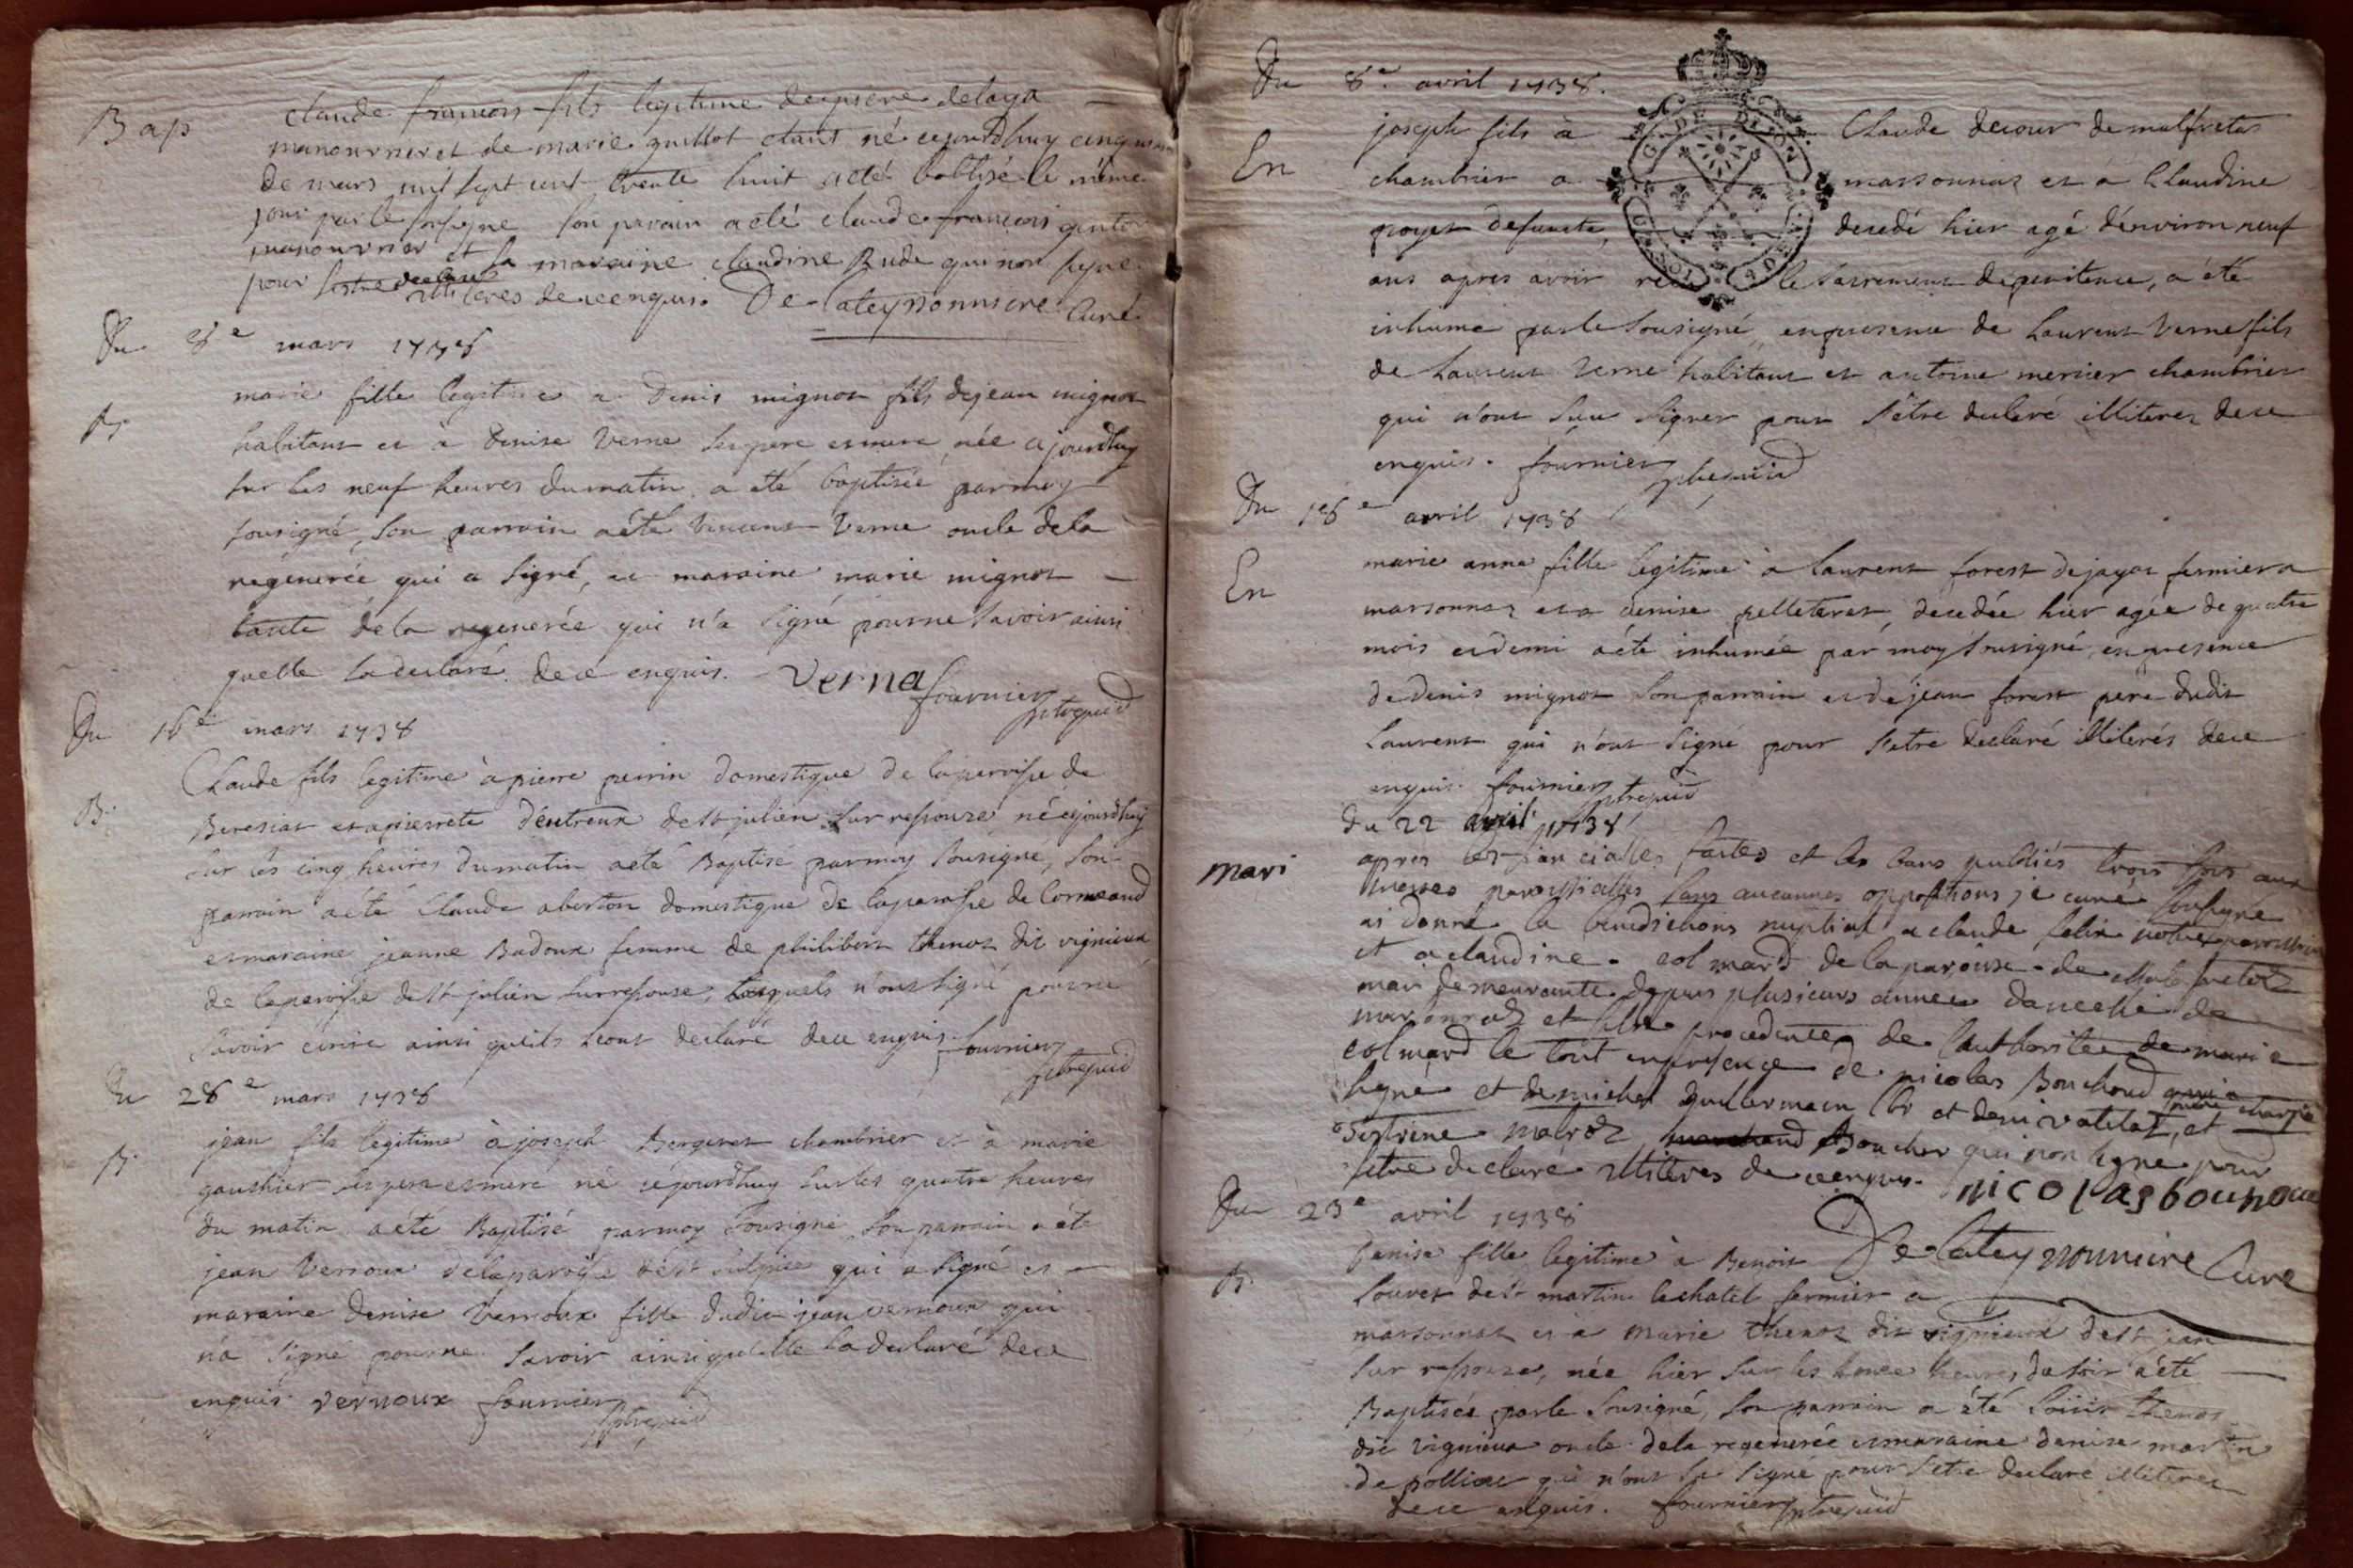 Bap
claude francois fils legitime de piere delaya
manouvrier et de marie guillot etant né cejourdhuy cinq
de mars mil sept cent trente huit a eté batisé le même
jour par le sousigne son parain a eté claude francois
manouvrier et sa maraine claudine Rude qui non signe
pour illiteres de ce enquis. De lateyssonniere Curé
Du 8e mars 1738
B.
marie fille legitime a Denis mignot fils de jean mignot
habitant et à Denise Verne ses pere et mere, née cejourdhuy
sur les neuf heures du matin a eté baptisée par moy
sousigné, son parrain a eté Vincent Verne oncle de la
regenerée qui a signé, et maraine marie mignot
tante de la regenerée qui n'a signé pour ne savoir ainsi
quelle la declaré de ce enquis. Verna fournier
Du 16e mars 1738
B.
Claude fils legitime à pierre perrin domestique de la paroisse de
Beresiat et a pierrete d'entreux de st julien sur ressouze, né cejourdhuy
sur les cinq heures du matin a eté Baptisé par moy sousigné, son
parrain a eté Claude domestique de la paroisse de Cormeand
et maraine jeanne Badoux femme de philibert thenoz dit vignieux
de la paroisse de st julien sur ressouze, lesquels n'ont signé pour ne
savoir ecrire ainsi qu'ils l'ont declaré de ce enquis. fournier
Du 28e mars 1738
B.
jean fils legitime à joseph Bergeret chambrier et à marie
gauthier ses pere et mere né cejourdhuy sur les quatre heures
du matin a eté Baptisé par moy sousigné, son parrain a eté
jean Vernoux de la paroisse de st Sulpice qui a signé et
maraine Denise Vernoux fille dudit jean vernoux qui
n'a signé pour ne savoir ainsi quelle la declaré de ce
enquis. vernoux fournier
Du 8e avril 1738.
En
joseph fils à Claude decour de malfretas
chambrier a marsonnas et a Claudine
poyet defunte, decedé hier agé d'environ neuf
ans apres avoir le sacrement de penitence, a eté
inhumé par le sousigné, en presence de Laurent Verne fils
de Laurent Verne habitant et antoine mercier chambrier
qui n'ont sçu signer pour s'être declaré illiterez de ce
enquis. fournier
Du 18e avril 1738
En
marie anne fille legitime à laurent forest de jayat fermier a
marsonnaz et a denise pelleterat, decedée hier agée de quatre
mois et demi a eté inhumée par moy sousigné, en presence
de Denis mignot son parrain et de jean forest pere dudit
Laurent qui n'ont signé pour s'etre declaré illiterés de ce
enquis. fournier
du 22 avril 1738
mari
apres les fiancialles faites et les bans publiés trois fois aux
messes paroissialles sans aucunnes oppositions je curé sousigne
ai donné la benedictions nuptial a claude felix notre paroissien
et a claudine colmard de la paroisse de malefretaz
mais demeurante depuis plusieurs annees dans celle de
marsonnaz et procedente de l'authoritee de marie
colmard le tout en presence de nicolas Bouchoud qui a
signe et de michel guillermain et deni vatelat, et
Boucher qui non signe pour
setre declaré illiteres de ce enquis. nicolas bouhoux
De lateyssonniere Curé
Du 23e avril 1738
B.
Denise fille legitime à Benoit
Louvet de st martin le chatel fermier a
marsonnas et a marie thenoz dit vignieux de st jean
sur ressouze, née hier sur les heures du soir a eté
Baptisée par le sousigné, son parrain a été thenoz
dit vignieux oncle de la regenerée et maraine denise martin
de polliat qui n'ont signé pour s'etre declaré illiterez
de ce enquis. fournier